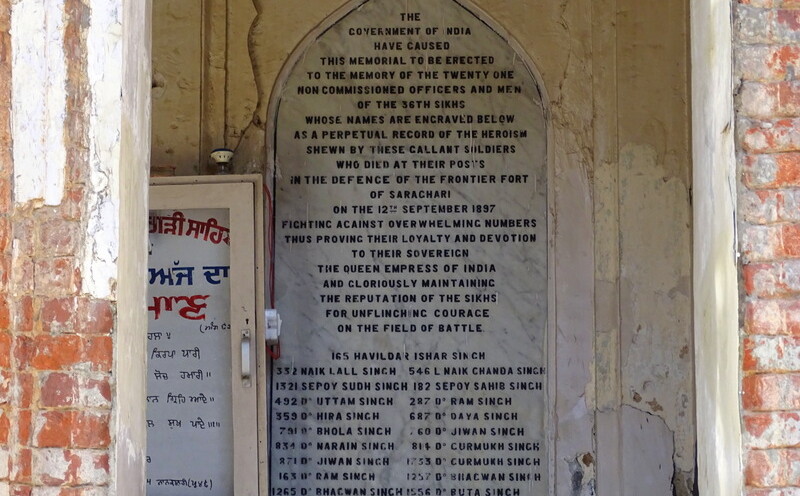 THE
GOVERNMENT OF INDIA
HAVE CAUSED
THIS MEMORIAL TO BE ERECTED
TO THE MEMORY OF THE TWENTY ONE
NON COMMISSIONED OFFICERS AND MEN
OF THE 36TH SIKHS
WHOSE NAMES ARE ENGRAVED BELOW
AS A PERPETUAL RECORD OF THE HEROISM
SHEWN BY THESE GALLANT SOLDIERS
WHO DIED AT THEIR POSTS
IN THE DEFENCE OF THE FRONTIER FORT
OF SARAGHARI
ON THE 12TH SEPTEMBER 1897
FIGHTING AGAINST OVERWHELMING NUMBERS
THUS PROVING THEIR LOYALTY AND DEVOTION
TO THEIR SOVEREIGN
THE QUEEN EMPRESS OF INDIA
AND GLORIOUSLY MAINTAINING
THE REPUTATION OF THE SIKHS
FOR UNFLINCHING COURAGE
ON THE FIELD OF BATTLE
165 HAVILDAR ISHAR SINGH
332 NAIK LALL SINGH 546 L NAIK CHANDA SINGH
1321 SEPOY SUDH SINGH 182 SEPOY SAHIB SINGH
492 Do UTTAM SINGH 287 Do RAM SINGH
359 Do HIRA SINGH 687 Do DAYA SINGH
791 Do BHOLA SINGH 60 Do JIWAN SINGH
834 Do NARAIN SINGH 814 Do GURMUKH SINGH
871 Do JIWAN SINGH 1733 Do GURMUKH SINGH
163 Do RAM SINGH 1257 Do BHAGWAN SINGH
1265 Do BHAGWAN SINGH 1556 Do BUTA SINGH
ਅੱਜ ਦਾ
ਕਿਰਪਾ ਧਾਰੀ
ਹਮਾਰੀ ॥